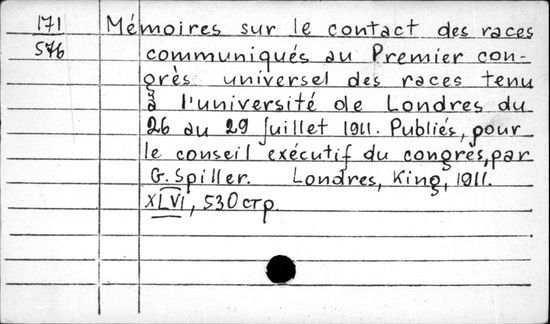 171
576
Mémoires sur le contact des races
communiqués au Premier con-
grès universel des races tenu
à l'université de Londres du
26 au 29 Juillet 1911. Publiés, pour
le conseil exécutif du congrès, par
G. Spiller. Londres, King, 1911.
XLVI, 530 стр.